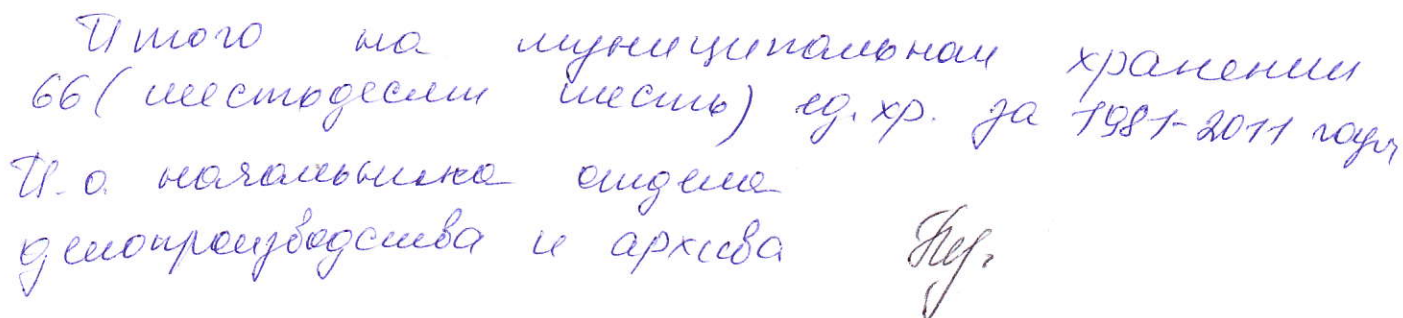 Итого на муниципальном хранении
66 (шестьдесят шесть) ед. хр. за 1981-2011 годы
И.о. начальника отдела
делопроизводства и архива